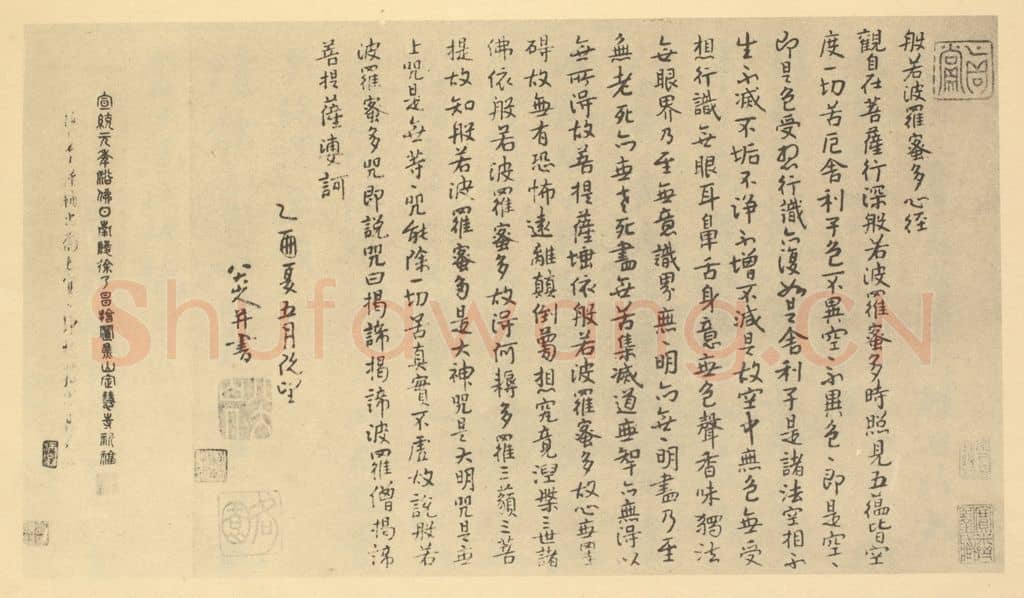 般若波羅蜜多心經
觀自在菩薩行深般若波羅蜜多時照見五蘊皆空
度一切苦厄舍利子色不異空、不異色、即是空、
即是色受想行識亦復如是舍利子是諸法空相不
生不滅不垢不淨不增不減是故空中無色無受
想行識無眼耳鼻舌身意無色聲香味觸法
無眼界乃至無意識界無明亦無、明盡乃至
無老死亦無老死盡無苦集滅道無智亦無得以
無所得故菩提薩埵依般若波羅蜜多故心無罣
礙故無有恐怖遠離顛倒夢想究竟涅槃三世諸
佛依般若波羅蜜多故得阿耨多羅三藐三菩
提故知般若波羅蜜多是大神咒是大明咒是無
上咒是無等、咒能除一切苦真實不虛故說般若
波羅蜜多咒即說咒曰揭諦揭諦波羅僧揭諦
菩提薩婆訶
乙酉夏五月既望
八大山人并書
宣統元年浴佛日南陵徐乃昌焦山定慧寺
Shufawang.CN